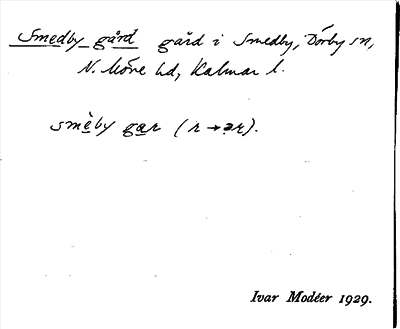 Smedby gård gård i Smedby, Dörby sn,
N. Möre hd, Kalmar l.
smèby gar (r → ər).
Ivar Modéer 1929.